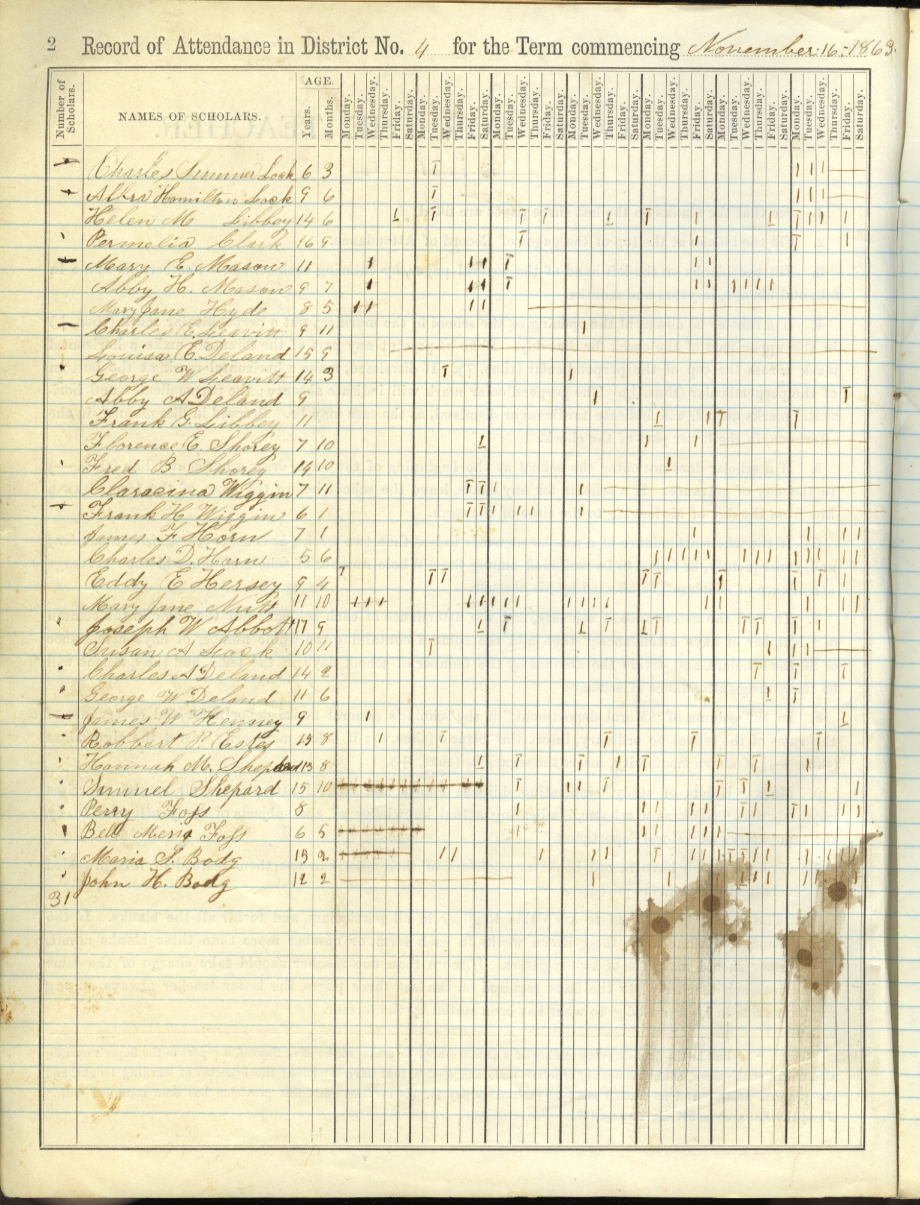 2 Record of Attendance in District No. 4 for the Term commencing November 16, 1863.
Number of Scholars. NAMES OF SCHOLARS. AGE. Years. Months. Monday. Tuesday. Wednesday. Thursday. Friday. Saturday. Monday. Tuesday. Wednesday. Thursday. Friday. Saturday. Monday. Tuesday. Wednesday. Thursday. Friday. Saturday. Monday. Tuesday. Wednesday. Thursday. Friday. Saturday. Monday. Tuesday. Wednesday. Thursday. Friday. Saturday. Monday. Tuesday. Wednesday. Thursday. Friday. Saturday. Monday. Tuesday. Wednesday. Thursday. Friday. Saturday.
Charles Sumner Lock 6 3
Hamilton Lock 9 6
Helen M Libbey 14 6
Permelia Clark 16 9
Mary E. Mason 11
Abby H. Mason 9 7
Mary Jane Hyde 8 5
Charles E. 9 11
Louisa E. Deland 15 9
George W Leavitt 14 3
Abby A Deland 9
Frank G. Libbey 11
Florence E. Shorey 7 10
Fred B Shorey 14 10
Claracina Wiggin 7 11
Frank H Wiggin 6 1
James F Horn 7 1
Charles D. Horn 5 6
Eddy E Hersey 9 4
Mary Jane Nutt 11 10
Joseph W Abbott 17 9
Susan A Lock 10 11
Charles A Deland 14 2
George W Deland 11 6
James W 9
Robbert P. Estes 13 8
Hannah M. Shepard 13 8
Samuel Shepard 15 10
Perry Foss 8
Bell Foss 6 5
Maria S. Bodg 13 2
John H. Bodg 12 2
31